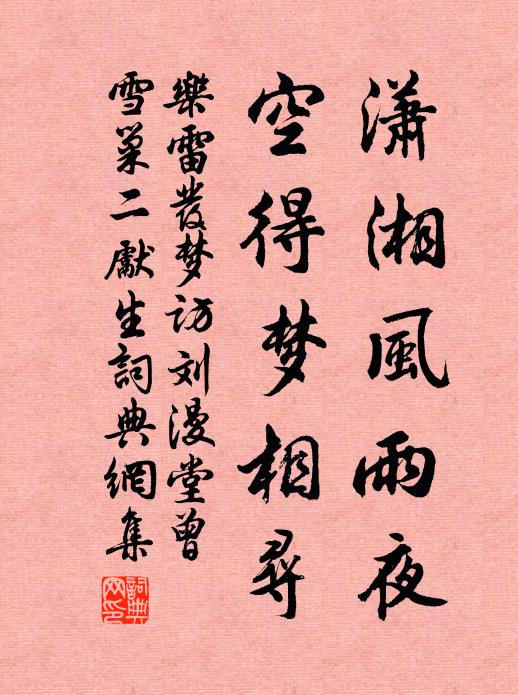 瀟湘風雨夜
空得梦相尋
樂雷發梦访刘漫堂曾
雪巢二獻生詞典網集
詞典網印